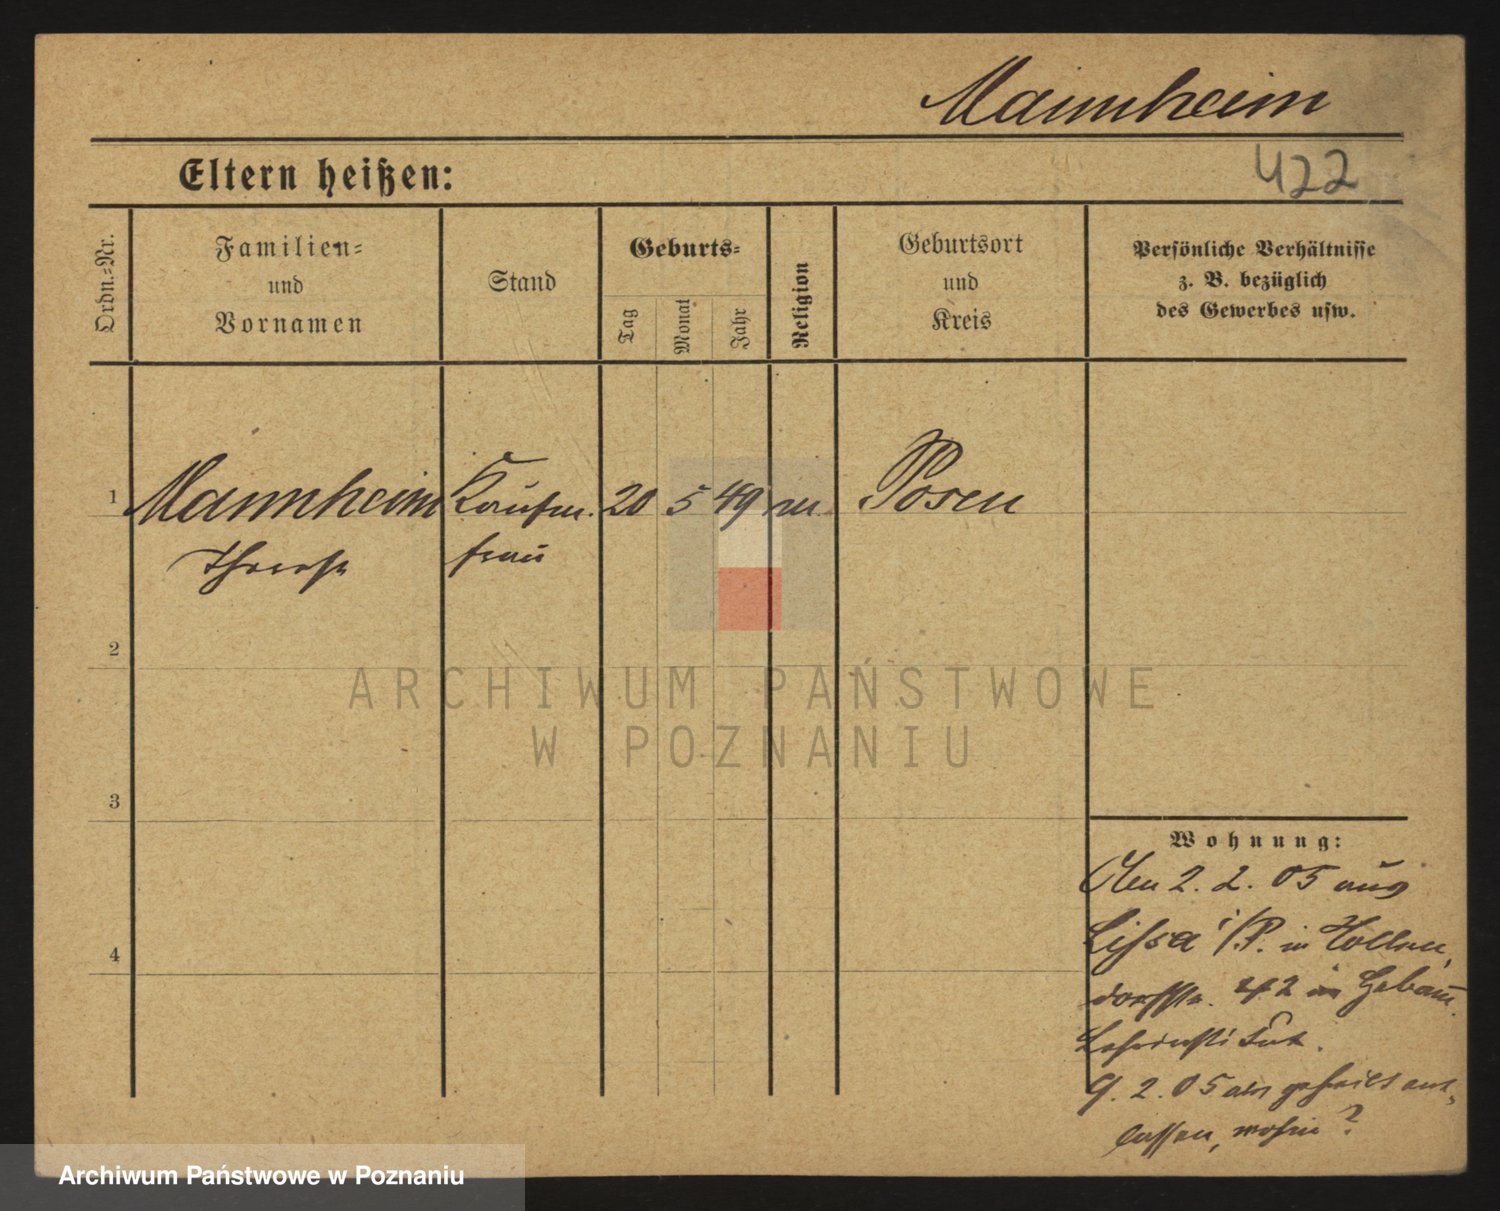 Mannheim
422
Eltern heißen:
Ordn.-Nr.
Familien-
und
Vornamen
Stand
Geburts-
Tag
Monat
Jahr
Religion
Geburtsort
und
Kreis
Persönliche Verhältnisse
z. B. bezüglich
des Gewerbes usw.
1 Mannheim Kaufm. 20 5 49 m. Posen
Therese frau
2
3
4
ARCHIWUM PAŃSTWOWE
W POZNANIU
Wohnung:
Den 2. 2. 05 aus
Lissa i/P. in Hollen
dorffstr. 42 in Gebär
Lehrinstitut.
9. 2. 05 als geheilt ent
lassen, wohin?
Archiwum Państwowe w Poznaniu